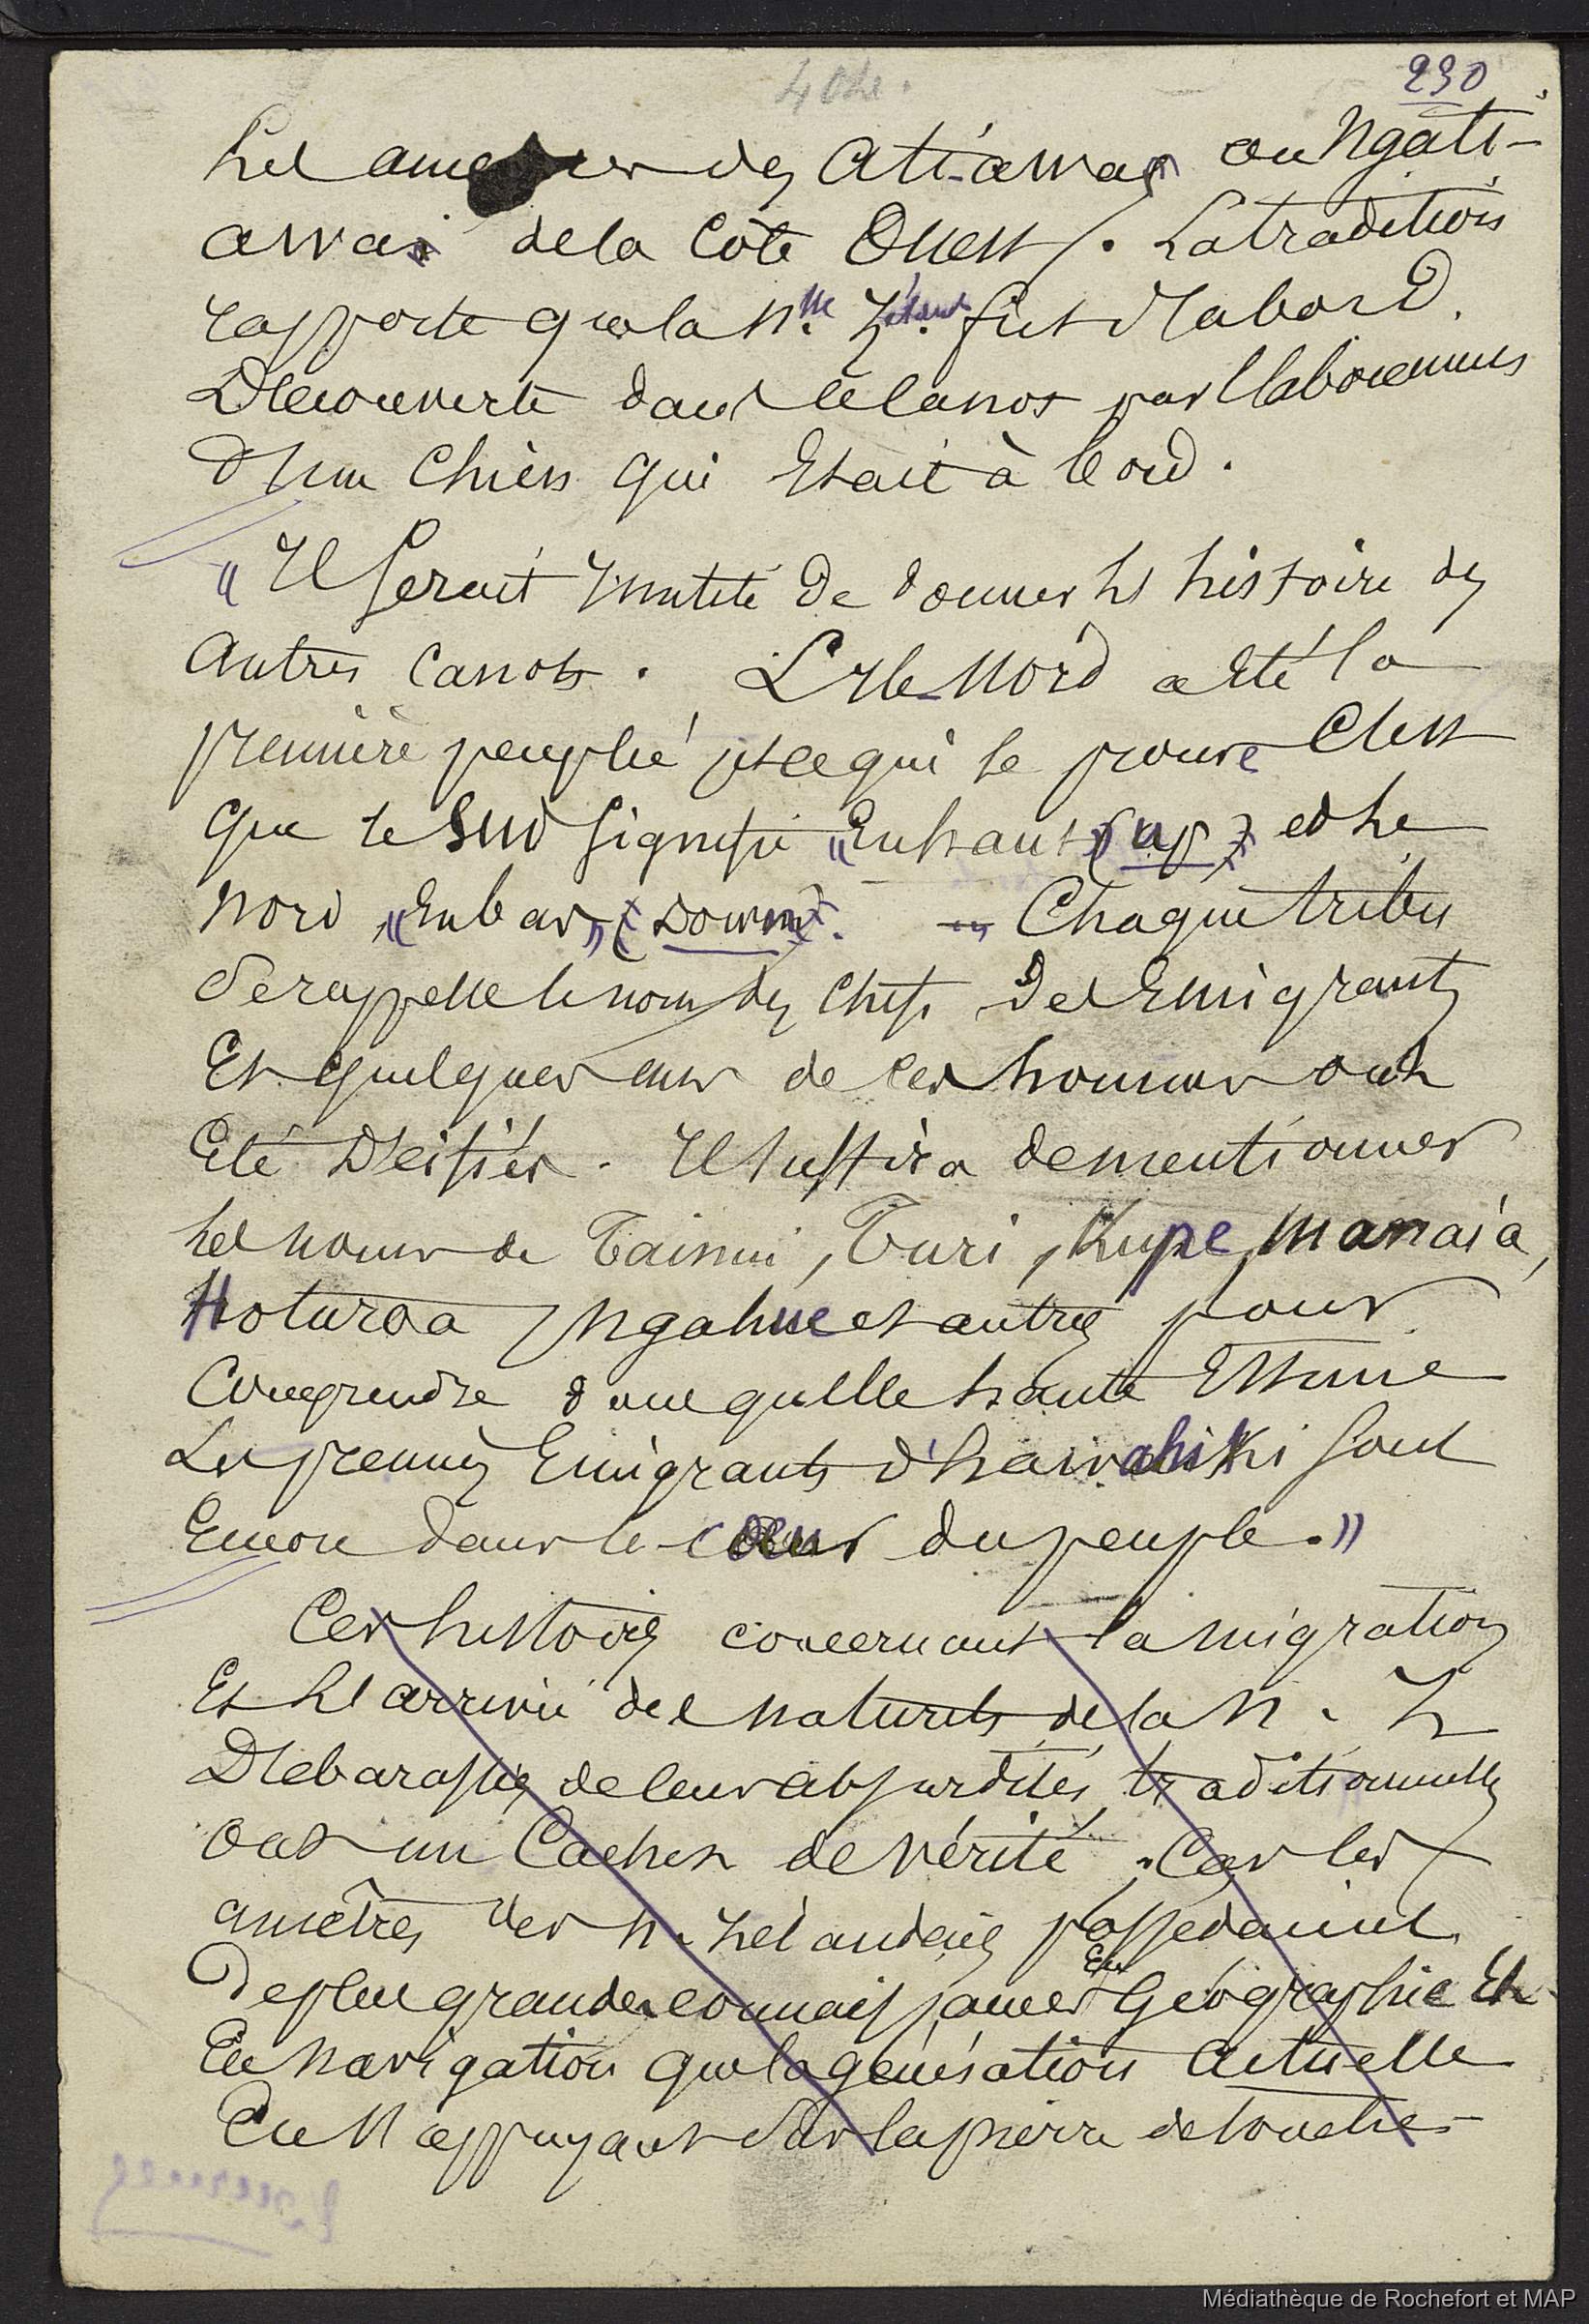 230
les ancêtres des Ati-awas ou Ngati-
awas de la Côte Ouest). La tradition
rapporte que la Nlle Zéland fut d'abord
Découverte dans ce canot par l'aboiement
d'un Chien qui Etait à bord.
"Il serait inutile de donner les histoire des
autres Canots. L'Ile Nord a été la
première peuplée et ce qui le prouve C'est
que le Sud signifie "En haut" (up) et le
Nord "En bas" (Down). — Chaque tribu
se rappelle le nom des Chefs des Emigrants
Et quelques uns de ces hommes ont
Eté Déifiés. Il suffira de mentionner
les noms de Tainui, Turi, Kupe, Manaia,
Hoturoa, Ngahue et autres pour
Comprendre donc quelle haute Estime
Les premiers Emigrants d'hawahiki sont
Encore dans le coeur du peuple."
Ces histoires concernant la migration
Et l'arrivée des naturels de la N. Z
Débarassées de leurs absurdités traditionnelles
Ont un Cachet de vérité. Car les
ancêtres des N. Zélandais possedaient
De plus grandes connaissances En Géographie Et
En Navigation que la génération Actuelle
En s'appuyant sur la pierre de touche
Médiathèque de Rochefort et MAP